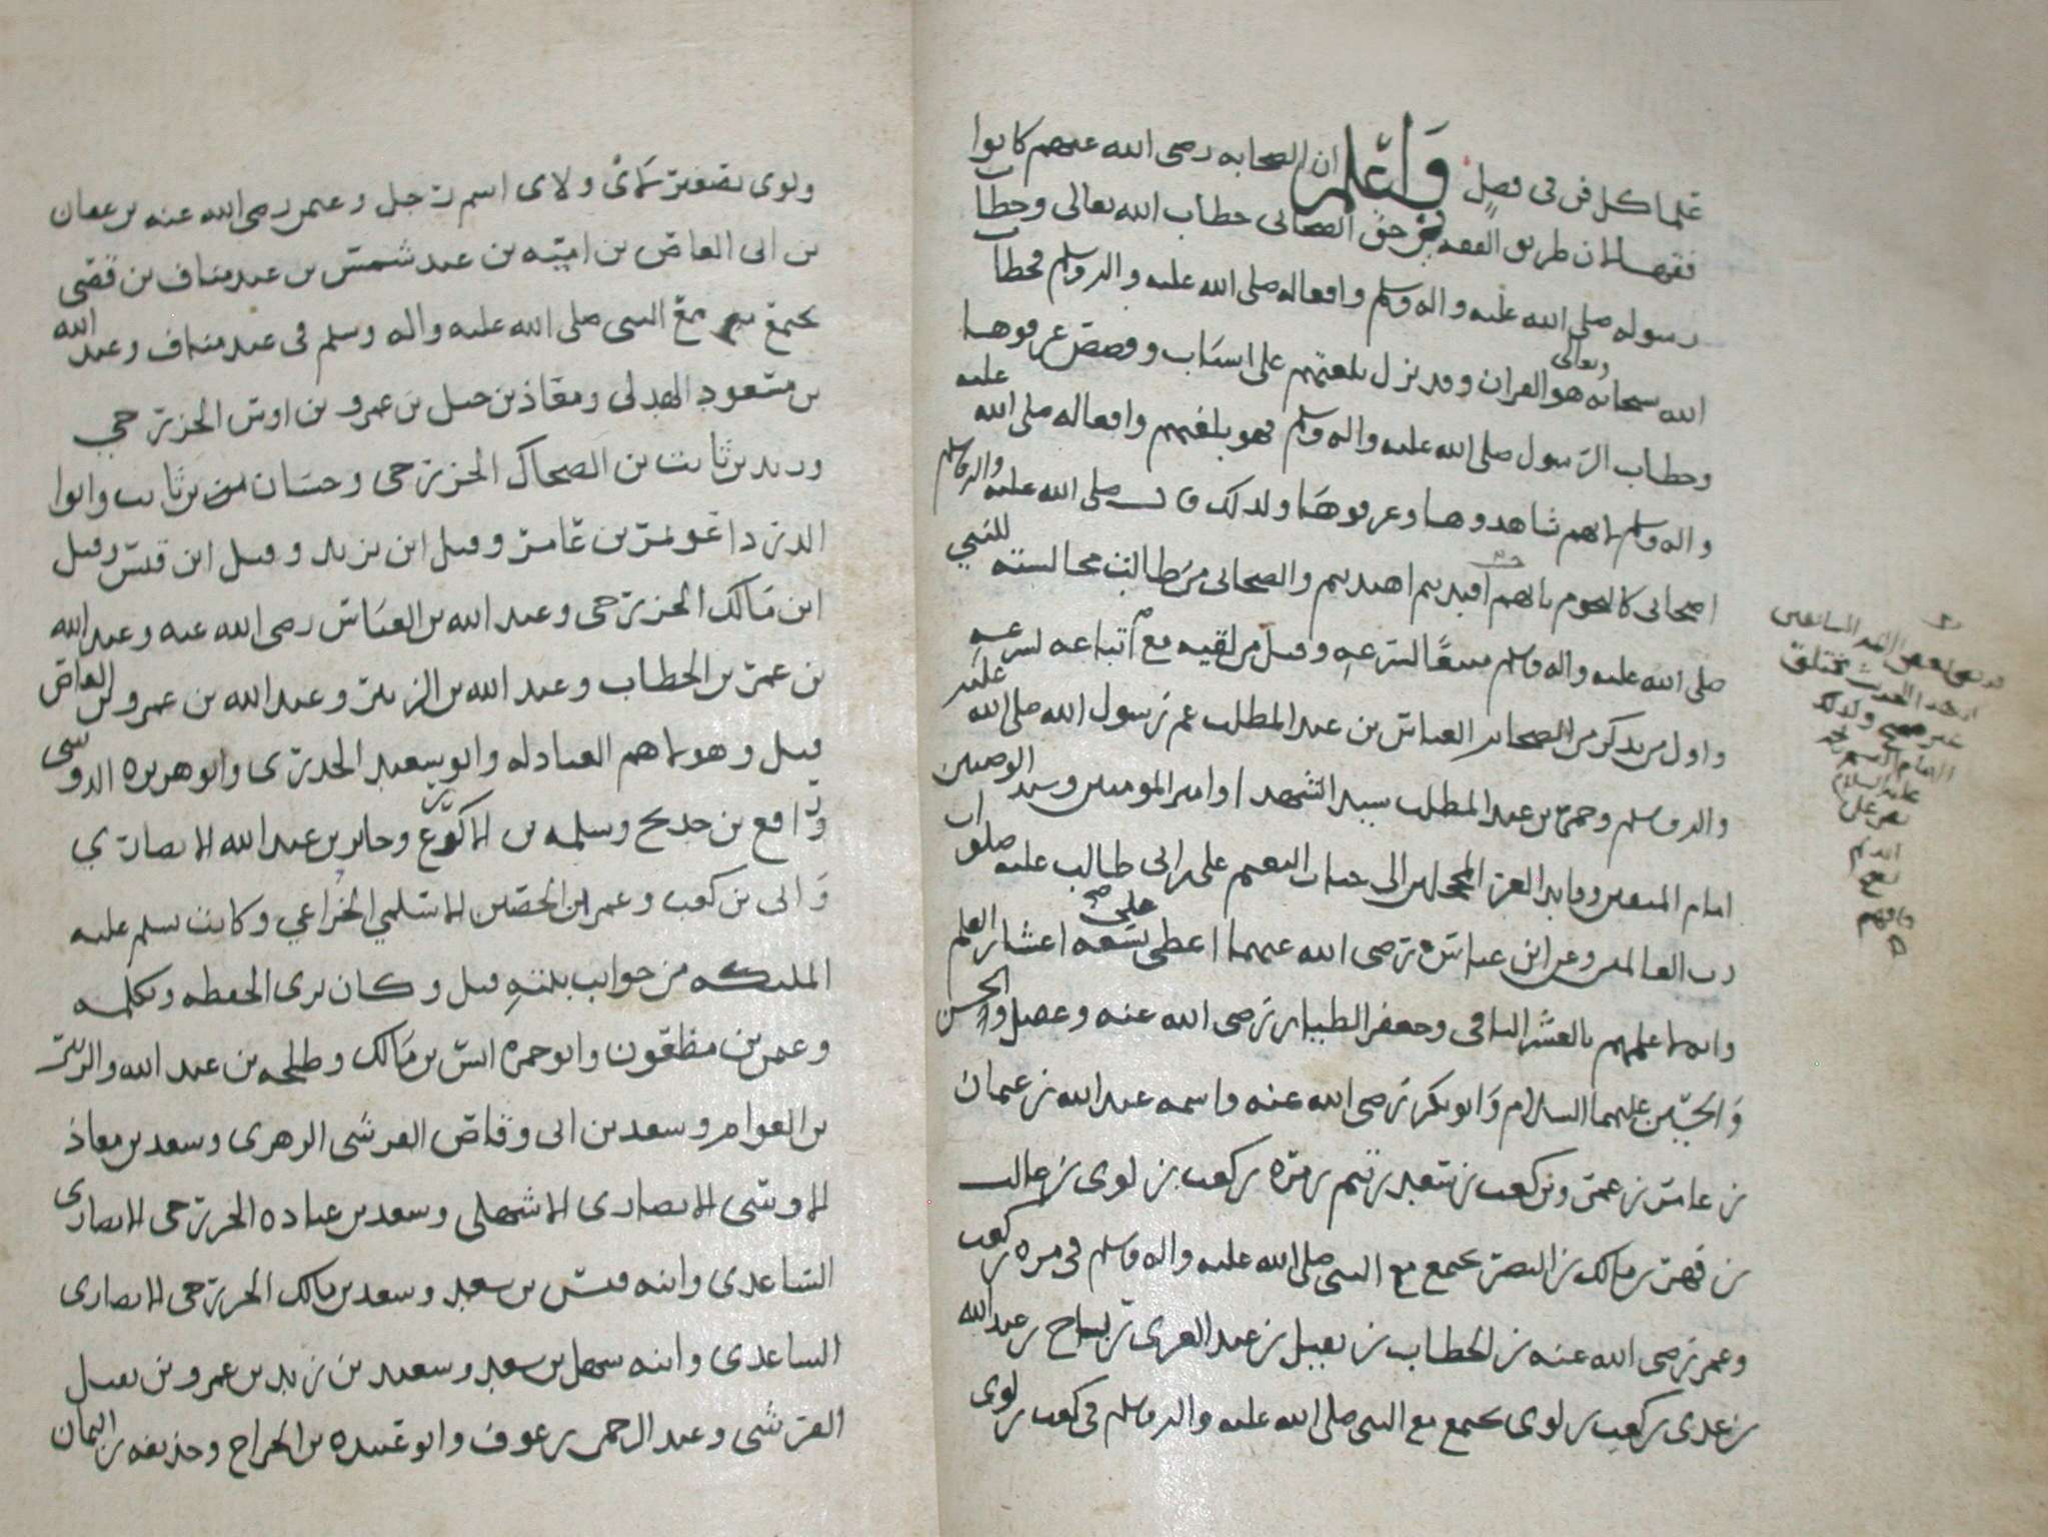 علما كل فن فى فصل واعلم ان الصحابه رضى الله عنهم كانوا
فقها لان طريق الفقه فى حق الصحابى خطاب الله تعالى وخطاب
رسوله صلى الله عليه واله وسلم وافعاله صلى الله عليه واله وسلم فخطاب
الله سبحانه وتعالى هو القران وقد نزل بلغتهم على اسباب وقصص عرفوها
وخطاب الرسول صلى الله عليه واله وسلم فهو بلغتهم وافعاله صلى الله عليه
واله وسلم لانهم شاهدوها وعرفوها ولذلك قال صلى الله عليه واله وسلم
اصحابى كالنجوم بايهم اقتديتم اهتديتم والصحابى من طالت مجالسته للنبي
صلى الله عليه واله وسلم متبعًا لشرعه وقيل من لقيه مع اتباعه لشرعه
واول من يذكر من الصحابه العباس بن عبد المطلب عم رسول الله صلى الله عليه
واله وسلم وحمزه بن عبد المطلب سيد الشهدا وامير المومنين وسيد الوصيين
امام المتقين وقايد الغر المحجلين الى جنات النعيم على بن ابى طالب عليه صلوات
رب العالمين وعن ابن عباس رضى الله عنهما اعطى على تسعه اعشار العلم
وانه لاعلمهم بالعشر الباقى وجعفر الطيار رضى الله عنه وعقيل والحسن
والحسين عليهما السلام وابو بكر رضى الله عنه واسمه عبد الله بن عثمان
بن عامر بن عمرو بن كعب بن سعد بن تيم بن مره بن كعب بن لوى بن غالب
بن فهر بن مالك بن النضر يجتمع مع النبى صلى الله عليه واله وسلم فى مره بن كعب
وعمر رضى الله عنه بن الخطاب بن نفيل بن عبد العزى بن رياح بن عبد الله
بن عدى بن كعب بن لوى يجتمع مع النبى صلى الله عليه واله وسلم فى كعب بن لوى
ائمه الحديث
غير صحيح ولذلك
الامام
عليه السلام
نص على
وافهم
ولوى تصغير لاى ولاى اسم رجل وعثمن رضى الله عنه بن عفان
بن ابى العاص بن اميه بن عبد شمس بن عبد مناف بن قصى
يجتمع مع النبى صلى الله عليه واله وسلم فى عبد مناف وعبد الله
بن مسعود الهذلى ومعاذ بن جبل بن عمرو بن اوس الخزرجي
وزيد بن ثابت بن الضحاك الخزرجى وحسان بن ثابت وابوا
الدردا عويمر بن عامر وقيل ابن يزيد وقيل ابن قيس وقيل
ابن مالك الخزرجى وعبد الله بن العباس رضى الله عنه وعبد الله
بن عمر بن الخطاب وعبد الله بن الزبير وعبد الله بن عمرو بن العاص
قيل وهولاهم العبادله وابو سعيد الخدرى وابو هريره الدوسى
ورافع بن خديج وسلمه بن الاكوع وجابر بن عبد الله الانصاري
وابى بن كعب وعمران الحصين الاسلمي الخزاعي وكانت تسلم عليه
المليكه من جوانب بيته قيل وكان يرى الحفظه وتكلمه
وعثمن بن مظعون وابو حمزه انس بن مالك وطلحه بن عبد الله والزبير
بن العوام وسعد بن ابى وقاص القرشى الزهرى وسعد بن معاذ
الاوسى الانصارى الاشهلى وسعد بن عباده الخزرجى الانصارى
الساعدى وابنه قيس بن سعد وسعد بن مالك الخزرجى الانصارى
الساعدى وابنه سهل بن سعد وسعيد بن زيد بن عمرو بن نفيل
القرشى وعبد الرحمن بن عوف وابو عبيده بن الجراح وحذيفه بن اليمان